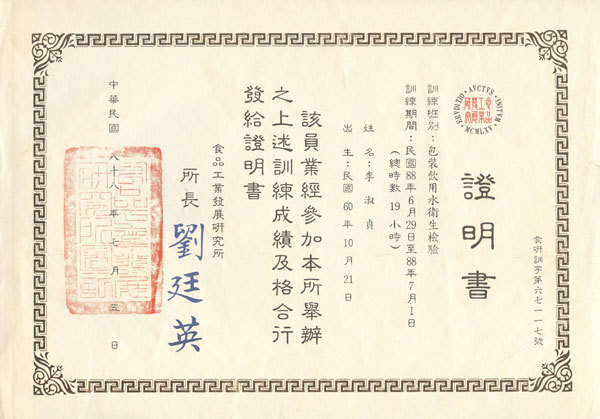 食研訓字第六七一一七號
證明書
ERVDITIO · AVCTVS · INITVM · MCMLXV
訓練班別:包裝飲用水衛生檢驗
訓練期間:民國88年6月29日至88年7月1日
(總時數 19 小時)
姓名:李淑貞
出生:民國60年10月21日
該員業經參加本所舉辦
之上述訓練成績及格合行
發給證明書
食品工業發展研究所
所長 劉廷英
中華民國八十八年七月五日